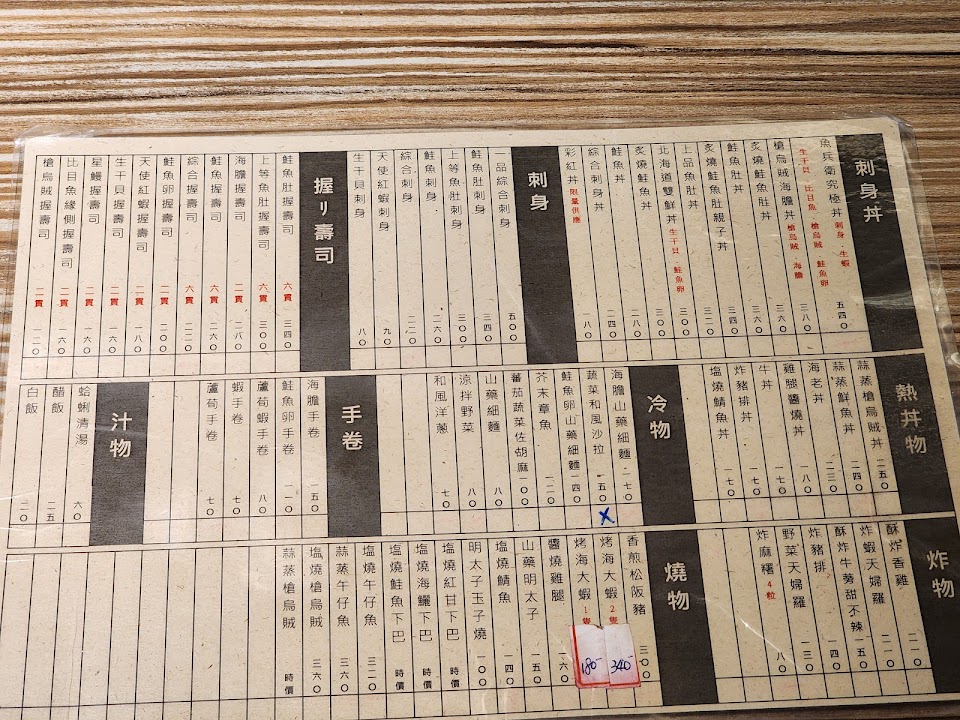 刺身丼
魚兵衛究極丼 刺身．生蝦 生干貝．比目魚．槍烏賊．鮭魚卵 五四〇
槍烏賊海膽丼 槍烏賊．海膽 三八〇
炙燒鮭魚丼 三六〇
鮭魚肚丼 三六〇
炙燒鮭魚肚親子丼 三四〇
上品魚肚丼 三二〇
北海道雙鮮丼 生干貝．鮭魚卵 三〇〇
炙燒鮭魚丼 三〇〇
鮭魚丼 二八〇
綜合刺身丼 二四〇
彩虹丼 限量供應 一八〇
刺身
一品綜合刺身 五〇〇
鮭魚肚刺身 三四〇
上等魚肚刺身 三〇〇
鮭魚刺身 二六〇
綜合刺身 二二〇
天使紅蝦刺身 九〇
生干貝刺身 八〇
握り壽司
鮭魚肚握壽司 六貫 三四〇
上等魚肚握壽司 六貫 三〇〇
海膽握壽司 二貫 二八〇
鮭魚握壽司 六貫 二六〇
綜合握壽司 六貫 二二〇
鮭魚卵握壽司 二貫 二〇〇
天使紅蝦握壽司 二貫 一八〇
生干貝握壽司 二貫 一六〇
星鰻握壽司 二貫 一六〇
比目魚緣側握壽司 二貫 一六〇
槍烏賊握壽司 二貫 一二〇
熱丼物
蒜蒸槍烏賊丼 二五〇
蒜蒸鮮魚丼 二四〇
海老丼 二二〇
雞腿醬燒丼 一八〇
牛丼 一七〇
炸豬排丼 一七〇
塩燒鯖魚丼 一七〇
冷物
海膽山藥細麵 二七〇
蔬菜和風沙拉 一五〇 X
鮭魚卵山藥細麵 一四〇
芥末章魚 一二〇
蕃茄蔬菜佐胡麻 一〇〇
山藥細麵 八〇
涼拌野菜 八〇
和風洋蔥 七〇
手卷
海膽手卷 一五〇
鮭魚卵手卷 一一〇
蘆筍蝦手卷 八〇
蝦手卷 七〇
蘆筍手卷 七〇
汁物
蛤蜊清湯 六〇
醋飯 二五
白飯 二〇
炸物
酥炸香雞 二一〇
炸蝦天婦羅 二一〇
酥炸牛蒡甜不辣 一五〇
炸豬排 一四〇
野菜天婦羅 一三〇
炸麻糬 4粒 八〇
燒物
香煎松阪豬 三〇〇
烤海大蝦 2隻 340-
烤海大蝦 1隻 180-
醬燒雞腿 一六〇
山藥明太子 一五〇
塩燒鯖魚 一四〇
明太子玉子燒 一〇〇
塩燒紅甘下巴 時價
塩燒海鱺下巴 時價
塩燒鮭魚下巴 時價
塩燒午仔魚 三二〇
蒜蒸午仔魚 三六〇
塩燒槍烏賊 三六〇
蒜蒸槍烏賊 時價